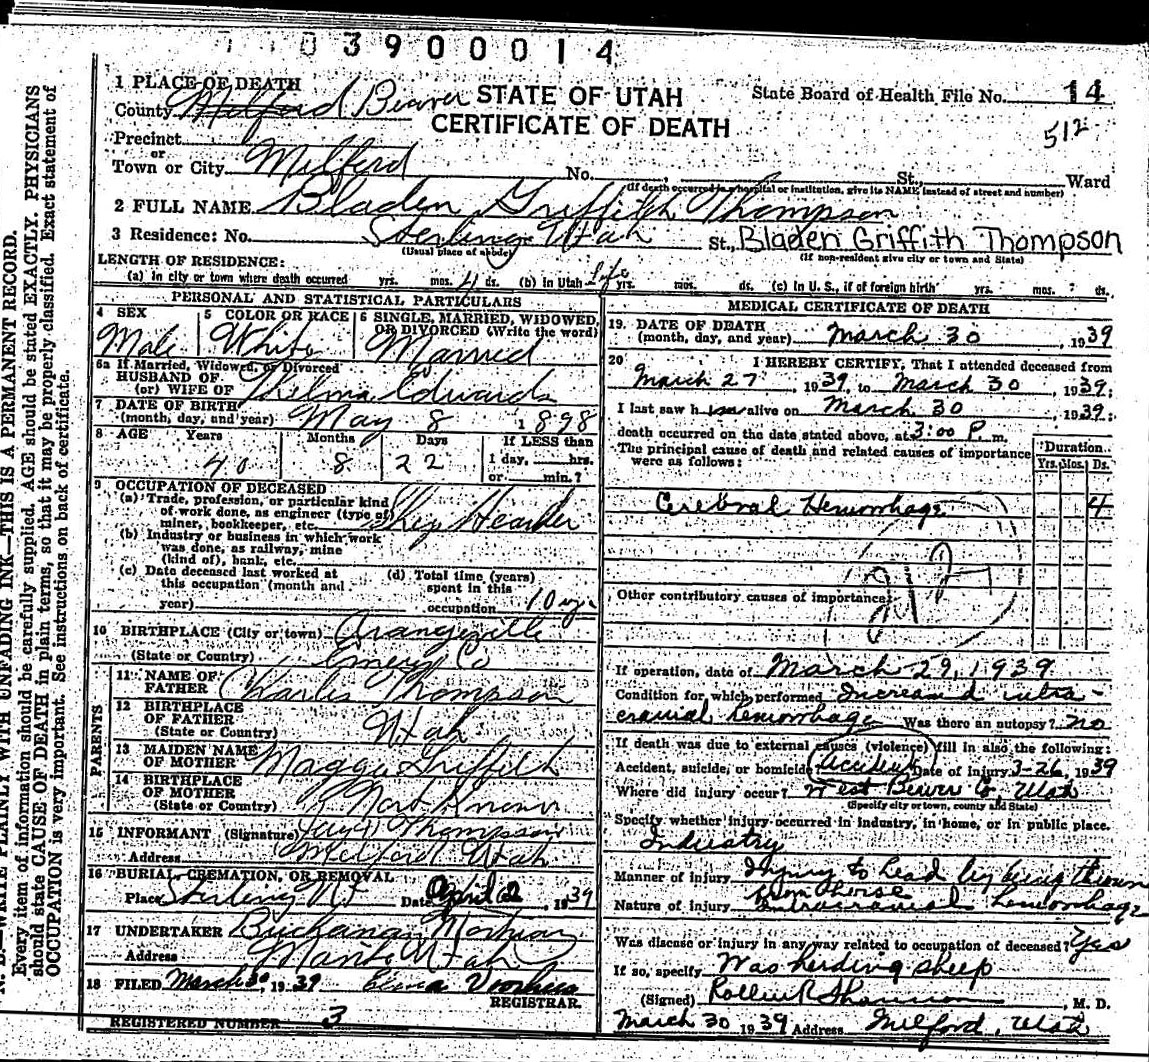 7 1 0 3 9 0 0 0 1 4
1 PLACE OF DEATH
County Milford Beaver
STATE OF UTAH
CERTIFICATE OF DEATH
State Board of Health File No. 14
512
Precinct
or
Town or City Milford No. , St., Ward
(If death occurred in a hospital or institution, give its NAME instead of street and number)
2 FULL NAME Bladen Griffith Thompson
3 Residence: No. Sterling Utah St., Bladen Griffith Thompson
(Usual place of abode) (If non-resident give city or town and State)
LENGTH OF RESIDENCE:
(a) In city or town where death occurred yrs. mos. 4 ds. (b) in Utah Life yrs. mos. ds. (c) In U. S., if of foreign birth yrs. mos. ds.
PERSONAL AND STATISTICAL PARTICULARS
4 SEX
Male
5 COLOR OR RACE
White
6 SINGLE, MARRIED, WIDOWED, OR DIVORCED (Write the word)
Married
6a If Married, Widowed, or Divorced
HUSBAND OF
(or) WIFE OF Thelma Edwards
7 DATE OF BIRTH
(month, day, and year) May 8 1898
8 AGE Years Months Days If LESS than
40 8 22 1 day, hrs.
or min.?
9 OCCUPATION OF DECEASED
(a) Trade, profession, or particular kind
of work done, as engineer (type of)
miner, bookkeeper, etc.
(b) Industry or business in which work
was done, as railway, mine
(kind of), bank, etc.
(c) Date deceased last worked at
this occupation (month and
year)
(d) Total time (years)
spent in this
occupation 10 yr.
10 BIRTHPLACE (City or town) Orangeville
(State or Country) Emery Co
PARENTS
11 NAME OF
FATHER Charles Thompson
12 BIRTHPLACE
OF FATHER
(State or Country) Utah
13 MAIDEN NAME
OF MOTHER Maggie Griffith
14 BIRTHPLACE
OF MOTHER
(State or Country) Not Known
15 INFORMANT (Signature) Thompson
Address Milford Utah
16 BURIAL, CREMATION, OR REMOVAL
Place Sterling Ut Date April 2, 1939
17 UNDERTAKER Buchanan Mortuary
Address Manti Utah
18 FILED March 30, 1939 Voorhees
REGISTRAR.
REGISTERED NUMBER 3
MEDICAL CERTIFICATE OF DEATH
19. DATE OF DEATH
(month, day, and year) March 30, 1939
20 I HEREBY CERTIFY, That I attended deceased from
March 27, 1939, to March 30, 1939;
I last saw h im alive on March 30, 1939;
death occurred on the date stated above, at 3:00 P. m.
The principal cause of death and related causes of importance
were as follows:
Duration
Yrs. Mos. Ds.
Cerebral Hemorrhage 4
Other contributory causes of importance:
If operation, date of March 29, 1939
Condition for which performed Increased intra-
cranial hemorrhage Was there an autopsy? no
If death was due to external causes (violence) fill in also the following:
Accident, suicide, or homicide? Accident Date of injury 3-26, 1939
Where did injury occur? West Beaver Co, Utah
(Specify city or town, county and State)
Specify whether injury occurred in industry, in home, or in public place.
Industry
Manner of injury Injury to head by being thrown
from horse
Nature of injury Intracranial hemorrhage
Was disease or injury in any way related to occupation of deceased? Yes
If so, specify Was herding sheep
(Signed) Rollin R Shannon, M. D.
March 30 1939 Address Milford, Utah
N. B.—WRITE PLAINLY WITH UNFADING INK—THIS IS A PERMANENT RECORD.
Every item of information should be carefully supplied. AGE should be stated EXACTLY. PHYSICIANS
should state CAUSE OF DEATH in plain terms, so that it may be properly classified. Exact statement of
OCCUPATION is very important. See instructions on back of certificate.